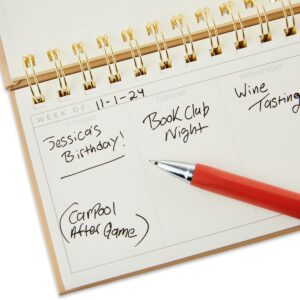 WEEK OF: 11-1-24
MONDAY
TUESDAY
WEDNESDAY
Jessica's
Birthday!
Book Club
Night
Wine
Tasting
(Carpool
After Game)